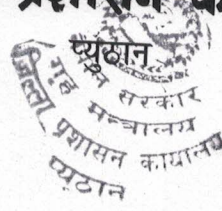 प्यूठान
सरकार
गृह मन्त्रालय
जिल्ला प्रशासन कार्यालय
प्यूठान